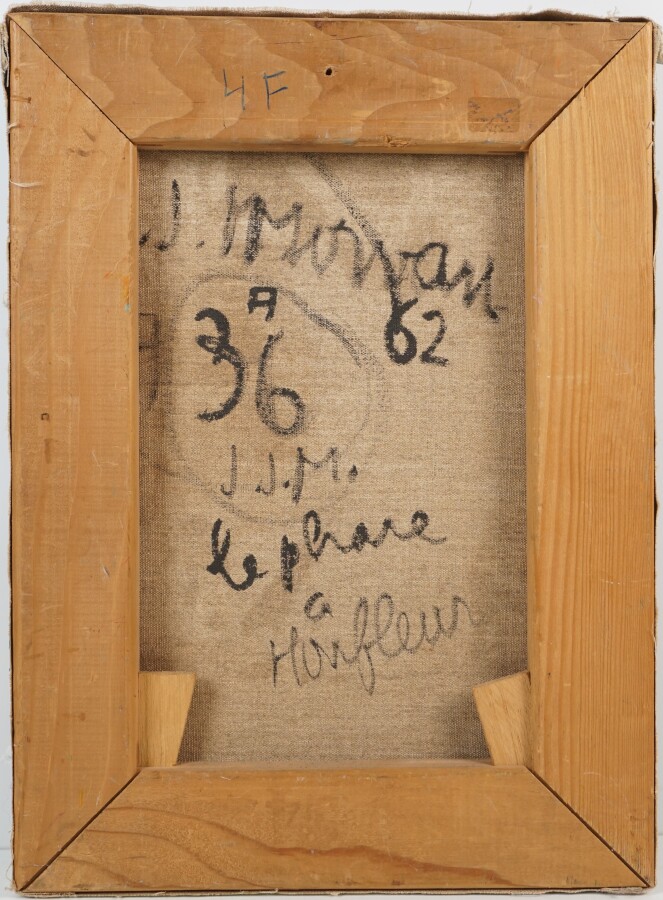 4F
J. Morvan
62
A
36
J J.M.
le phare
a
Honfleur